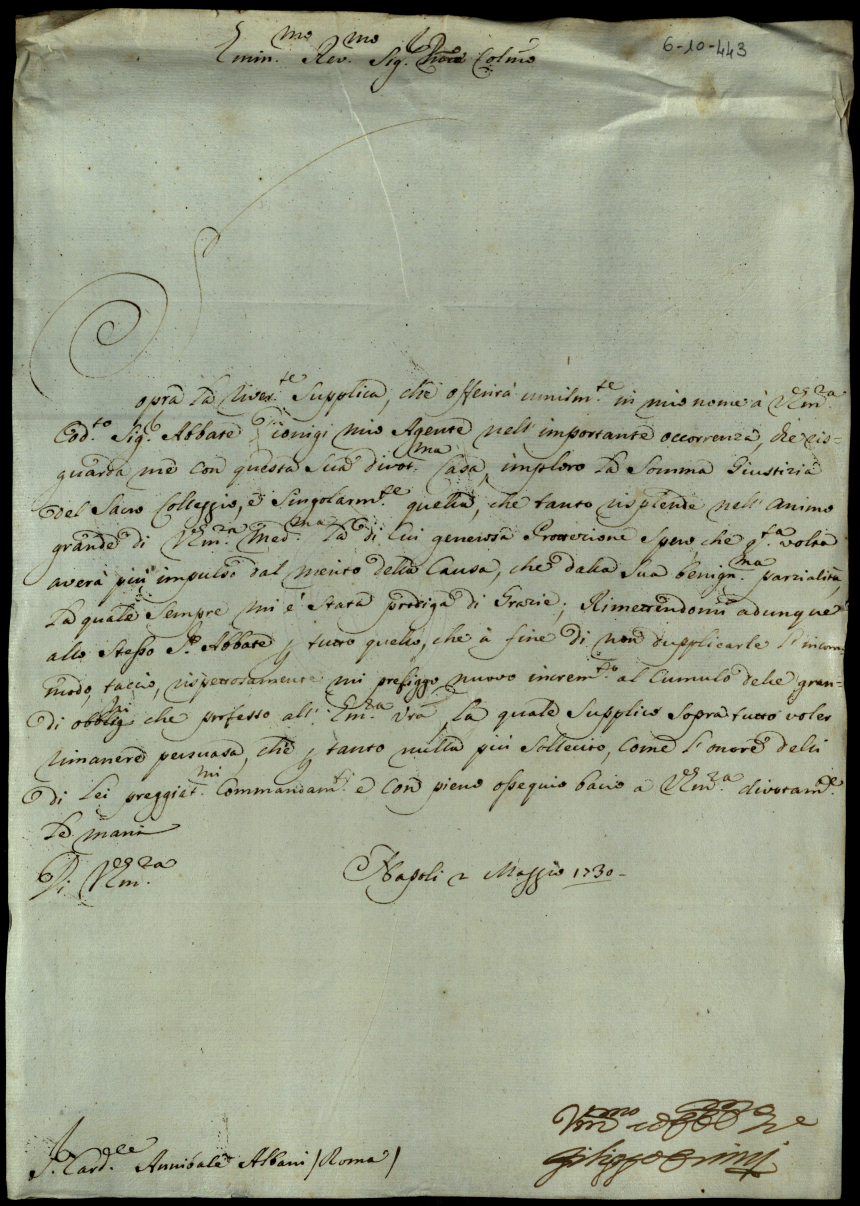 6-10-443
Emin.mo Rev.mo Sig.r Pnre Colmo
Sopra la river.te Supplica, che offerirà umilm.te in mio nome à V.Em.za
Cod.to Sig.r Abbate Dionigi mio Agente nell'importante occorrenza, che ris=
guarda me con questa Sua divot.ma Casa, imploro la Somma Giustizia
del Sacro Colleggio, e Singolarm.te quella, che tanto risplende nell'animo
grande di V.Em.za Med.ma la di cui generosa Protezzione Spero, che q.ta volta
averà più impulso dal merito della Causa, che dalla Sua benign.ma parzialità,
la quale Sempre mi è Stata prodiga di Grazie; Rimettendomi adunque
allo Stesso S.r Abbate p tutto quello, che à fine di non dupplicarle l'incom=
modo, taccio, rispettosamente mi prefiggo nuovo increm.to al Cumulo delle gran=
di obblig.ni che professo all'Em.za Vra, la quale Supplico Sopra tutto voler
rimanere persuasa, che p tanto nulla più Sollecito, come l'onore delli
di Lei preggiat.mi Commandam.ti e con pieno ossequio bacio a V.Em.za divotam.te
le mani
Di V.Em.za Napoli 2 Maggio 1730.
S.r Card.le Annibale Albani (Roma)
Filippo Orsini